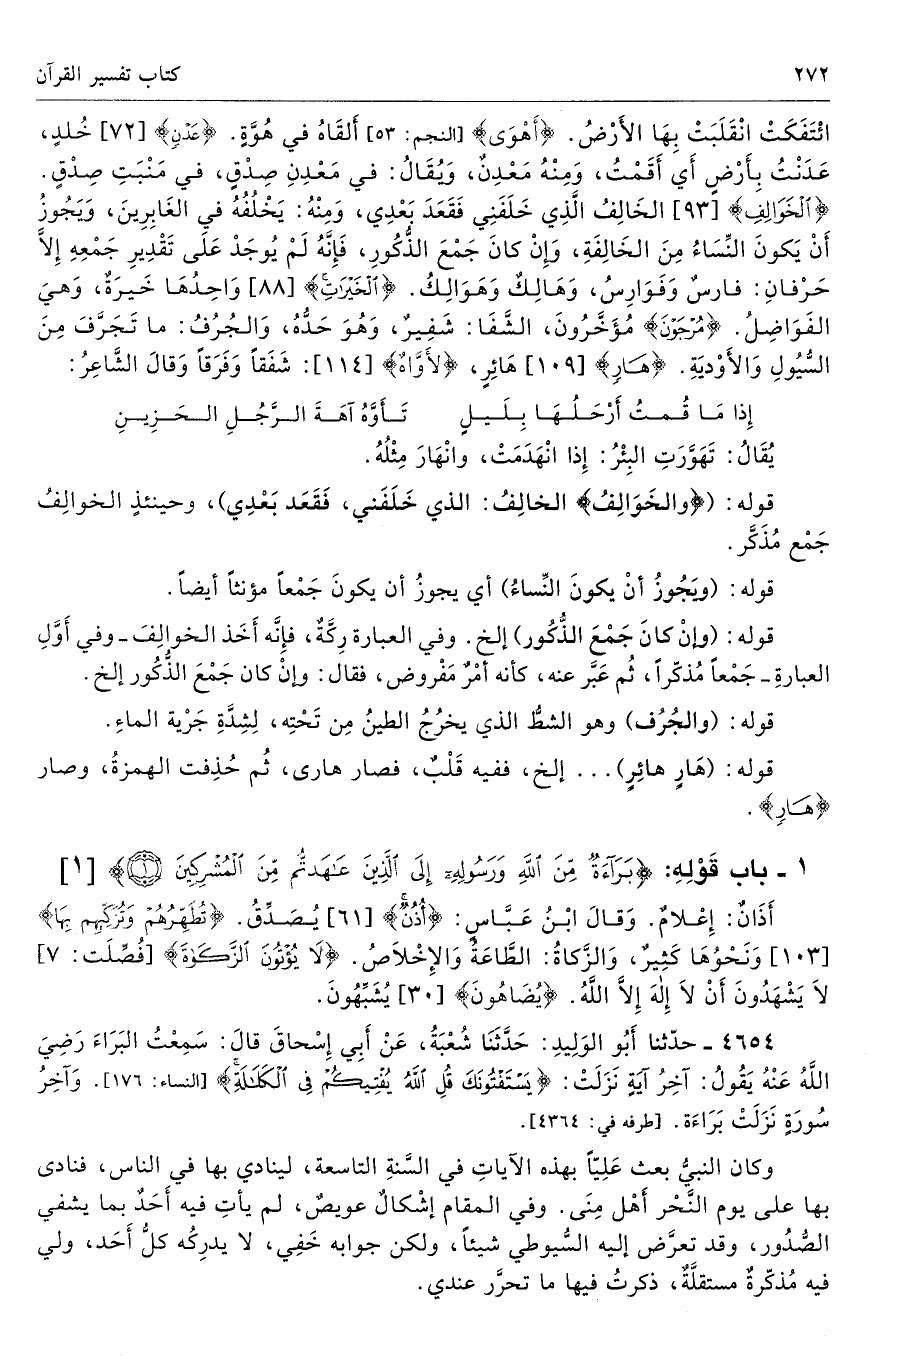 ٢٧٢ كتاب تفسير القرآن
ائْتَفَكَتْ انْقَلَبَتْ بِهَا الأَرْضُ. ﴿أَهْوَى﴾ [النجم: ٥٣] أَلقَاهُ في هُوَّةٍ. ﴿عَدْنٍ﴾ [٧٢] خُلدٍ،
عَدَنْتُ بِأَرْضٍ أَي أَقَمْتُ، وَمِنْهُ مَعْدِنٌ، وَيُقَالُ: في مَعْدِنِ صِدْقٍ، في مَنْبَتِ صِدْقٍ.
﴿الْخَوَالِفِ﴾ [٩٣] الخَالِفُ الَّذِي خَلَفَنِي فَقَعَدَ بَعْدِي، وَمِنْهُ: يَخْلُفُهُ في الغَابِرِينَ، وَيَجُوزُ
أَنْ يَكُونَ النِّسَاءُ مِنَ الخَالِفَةِ، وَإِنْ كانَ جَمْعَ الذُّكُورِ، فَإِنَّهُ لَمْ يُوجَدْ عَلَى تَقْدِيرِ جَمْعِهِ إِلاَّ
حَرْفانِ: فارِسٌ وَفَوَارِسُ، وَهَالِكٌ وَهَوَالِكُ. ﴿الْخَيْرَاتُ﴾ [٨٨] وَاحِدُهَا خَيرَةٌ، وَهيَ
الفَوَاضِلُ. ﴿مُرْجَوْنَ﴾ مُؤَخَّرُونَ، الشَّفَا: شَفِيرٌ، وَهُوَ حَدُّهُ، وَالجُرُفُ: ما تَجَرَّفَ مِنَ
السُّيُولِ وَالأَوْدِيَةِ. ﴿هَارٍ﴾ [١٠٩] هَائِرٍ، ﴿لأَوَّاهٌ﴾ [١١٤]: شَفَقاً وَفَرَقاً وَقالَ الشَّاعِرُ:
إِذا مَا قُمتُ أَرْحَلُهَا بِلَيلٍ تَأَوَّهُ آهَةَ الرَّجُلِ الحَزِينِ
يُقَالُ: تَهَوَّرَتِ البِئْرُ: إِذا انْهَدَمَتْ، وانْهَارَ مِثْلُهُ.
قوله: (﴿والخَوَالِفُ﴾ الخالِفُ: الذي خَلَفَني، فَقَعَد بَعْدِي)، وحينئذٍ الخوالِفُ
جَمْع مُذَكَّر.
قوله: (ويَجُوزُ أنْ يكونَ النِّساءُ) أي يجوزُ أن يكونَ جَمْعاً مؤنثاً أيضاً.
قوله: (وإنْ كانَ جَمْعَ الذُّكُور) إلخ. وفي العبارة رِكَّةٌ، فإنَّه أَخَذ الخوالِفَ ـ وفي أَوَّلِ
العبارةِ ـ جَمْعاً مُذكّراً، ثُم عَبَّر عنه، كأنه أَمْرٌ مَفْروض، فقال: وإنْ كان جَمْعَ الذُّكُور إلخ.
قوله: (والجُرُف) وهو الشطُّ الذي يخرُجُ الطينُ مِن تَحْتِه، لِشِدَّةِ جَرْية الماءِ.
قوله: (هَارٍ هائِرٍ)... إلخ، ففيه قَلْبٌ، فصار هارى، ثُم حُذِفت الهمزةُ، وصار
﴿هَارٍ﴾.
١ ـ باب قَوْلِهِ: ﴿بَرَآءَةٌ مِّنَ ٱللَّهِ وَرَسُولِهِۦٓ إِلَى ٱلَّذِينَ عَـٰهَدتُّم مِّنَ ٱلْمُشْرِكِينَ ۝١﴾ [١]
أَذَانٌ: إِعْلامٌ. وَقالَ ابْنُ عَبَّاسٍ: ﴿أُذُنٌ﴾ [٦١] يُصَدِّقُ. ﴿تُطَهِّرُهُمْ وَتُزَكِّيهِم بِهَا﴾
[١٠٣] وَنَحْوُهَا كَثِيرٌ، وَالزَّكاةُ: الطَّاعَةُ وَالإِخْلاَصُ. ﴿لَا يُؤْتُونَ ٱلزَّكَوٰةَ﴾ [فُصِّلَت: ٧]
لاَ يَشْهَدُونَ أَنْ لاَ إِلٰهَ إِلاَّ اللَّهُ. ﴿يُضَاهُونَ﴾ [٣٠] يُشَبِّهُونَ.
٤٦٥٤ ـ حدّثنا أَبُو الوَلِيدِ: حَدَّثَنَا شُعْبَةُ، عَنْ أَبِي إِسْحاقَ قالَ: سَمِعْتُ البَرَاءَ رَضِيَ
اللَّهُ عَنْهُ يَقُولُ: آخِرُ آيَةٍ نَزَلَتْ: ﴿يَسْتَفْتُونَكَ قُلِ ٱللَّهُ يُفْتِيكُمْ فِى ٱلْكَلَـٰلَةِ﴾ [النساء: ١٧٦]. وَآخِرُ
سُورَةٍ نَزَلَتْ بَرَاءَة. [طرفه في: ٤٣٦٤].
وكان النبيُّ بعث عَلِيّاً بهذه الآياتِ في السَّنةِ التاسعة، لينادي بها في الناس، فنادى
بها على يوم النَّحْر أَهْل مِنَى. وفي المقام إشْكالٌ عويصٌ، لم يأتِ فيه أَحَدٌ بما يشفي
الصُّدُور، وقد تعرَّض إليه السُّيوطي شيئاً، ولكن جوابه خَفِي، لا يدركه كلُّ أَحَد، ولي
فيه مُذكّرةٌ مستقلَّةٌ، ذكرتُ فيها ما تحرَّر عندي.